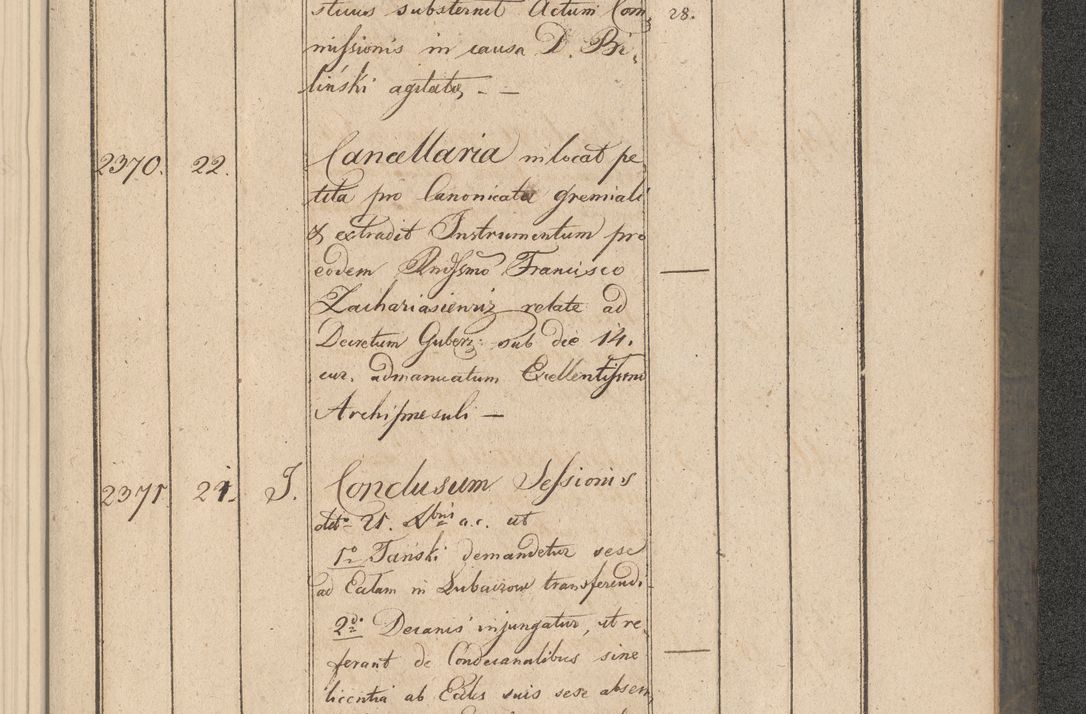 stivus substernit Actum Com, 28.
missionis in causa D. Bi,
liński agitatæ, - —
2370. 22. Cancellaria inlocat pe,
tita pro Canonicatu gremiali
& extradit Instrumentum pro
eodem Rndssmo Francisco —
Zachariasiewicz relate ad
Decretum Guber: sub die 14.
cur. admanuatum Excellentissmo
Archipræsuli —
2371 21. J. Conclusum Sessionis
dtto 21. Xbris a.c. ut
1o Tański demandetur sese
ad Ecclam in transferendi.
2do Decanis injungatur, ut re,
ferant de Condecanalibus sine —
licentia ab Eccliis suis sese absen,